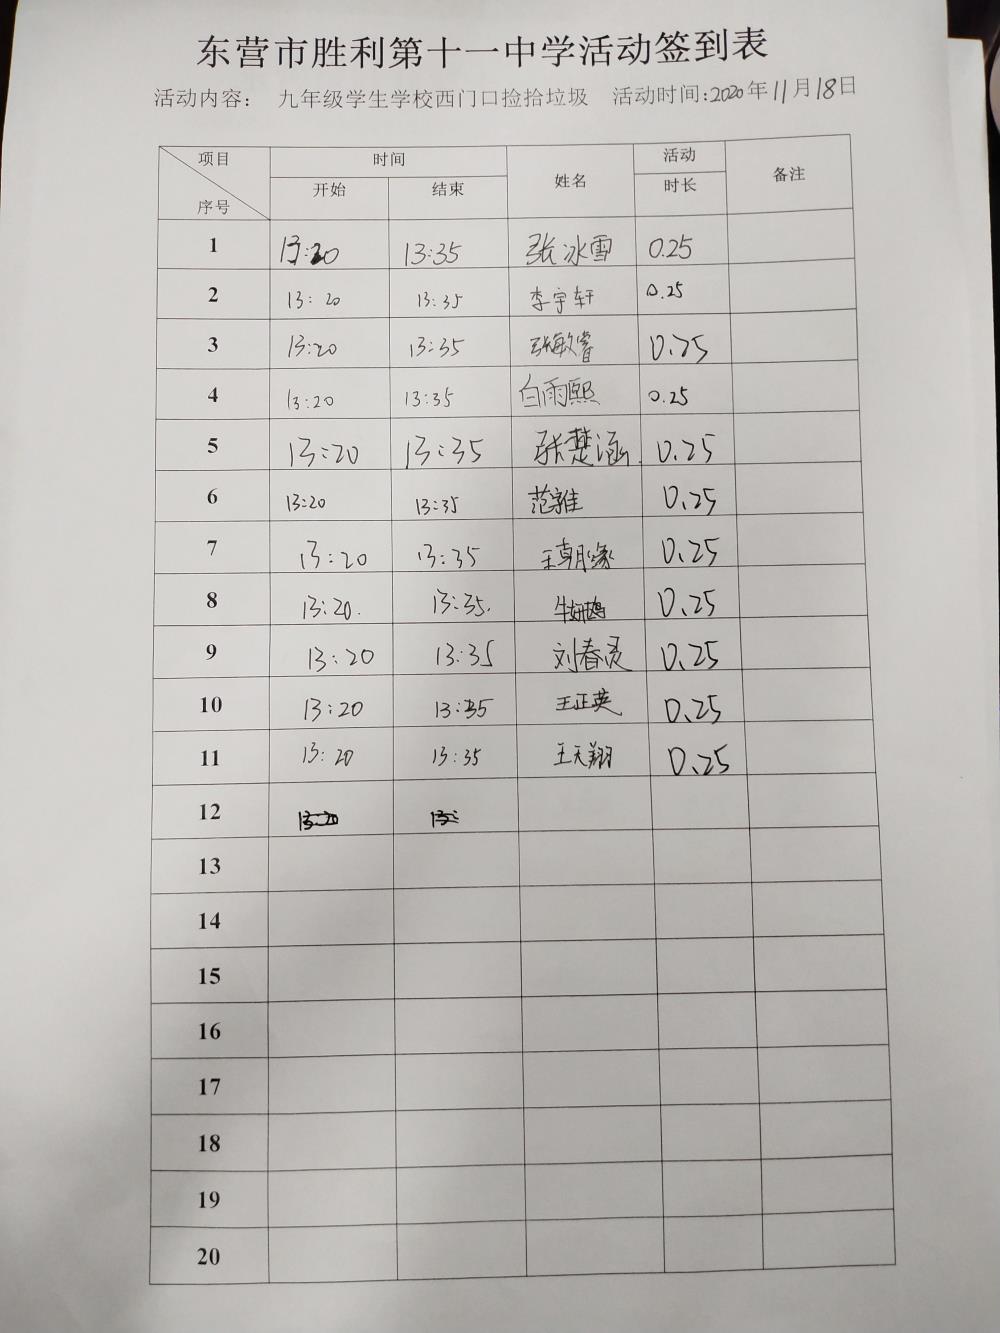 东营市胜利第十一中学活动签到表
活动内容： 九年级学生学校西门口捡拾垃圾 活动时间:2020年11月18日
项目 时间 姓名 活动 备注
序号 开始 结束 时长
1 13:20 13:35 张冰雪 0.25
2 13:20 13:35 李宇轩 0.25
3 13:20 13:35 张敏睿 0.25
4 13:20 13:35 白雨熙 0.25
5 13:20 13:35 张楚涵 0.25
6 13:20 13:35 0.25
7 13:20 13:35 王朝缘 0.25
8 13:20. 13:35. 0.25
9 13:20 13:35 刘春灵 0.25
10 13:20 13:35 王正英 0.25
11 13:20 13:35 王天翔 0.25
12
13
14
15
16
17
18
19
20